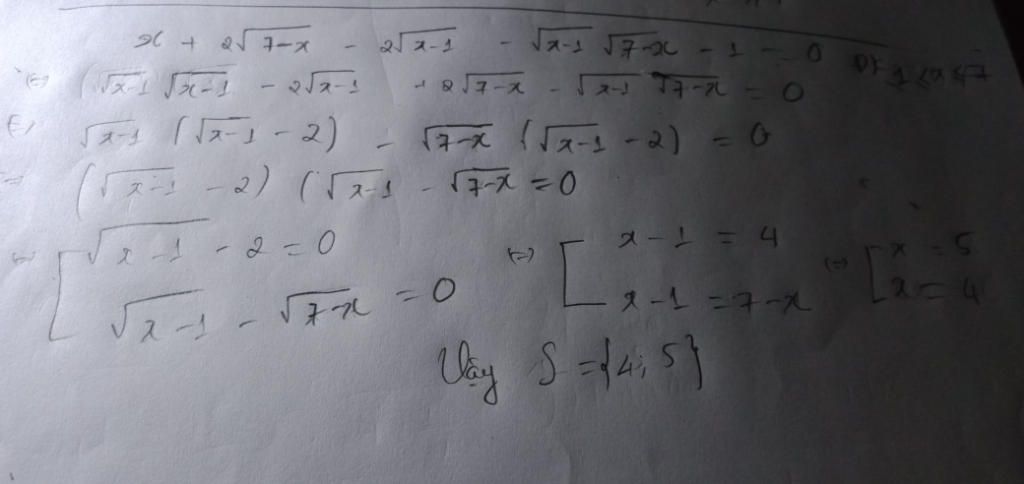 x + 2√(7-x) - 2√(x-1) - √(x-1) √(7-x) - 1 = 0 ĐK 1 ≤ x ≤ 7
(=) (√(x-1) √(x-1) - 2√(x-1) + 2√(7-x) - √(x-1) √(7-x) = 0
(=) √(x-1) (√(x-1) - 2) - √(7-x) (√(x-1) - 2) = 0
(=) (√(x-1) - 2) (√(x-1) - √(7-x) = 0
(=) [ √(x-1) - 2 = 0 (=) [ x - 1 = 4 (=) [ x = 5
√(x-1) - √(7-x) = 0 x - 1 = 7 - x x = 4
Vậy S = {4; 5}